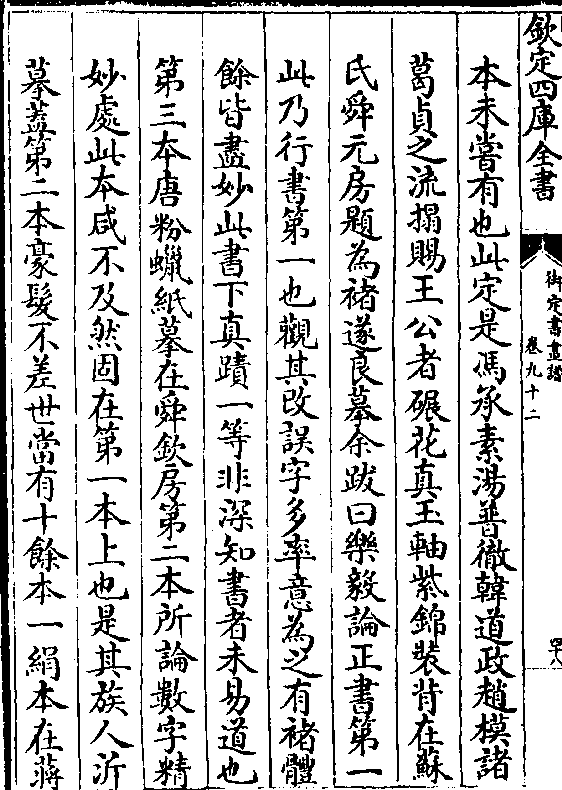 欽定四庫全書
御定書畫譜
卷九十二
四十八
本未嘗有也此定是馮承素湯普徹韓道政趙模諸
葛貞之流搨賜王公者碾花真玉軸紫錦裝背在蘇
氏舜元房題為褚遂良摹余跋曰樂毅論正書第一
此乃行書第一也觀其改誤字多率意為之有褚體
餘皆盡妙此書下真蹟一等非深知書者未易道也
第三本唐粉蠟紙摹在舜欽房第二本所論數字精
妙處此本咸不及然固在第一本上也是其族人沂
摹蓋第二本豪髮不差世當有十餘本一絹本在蔣